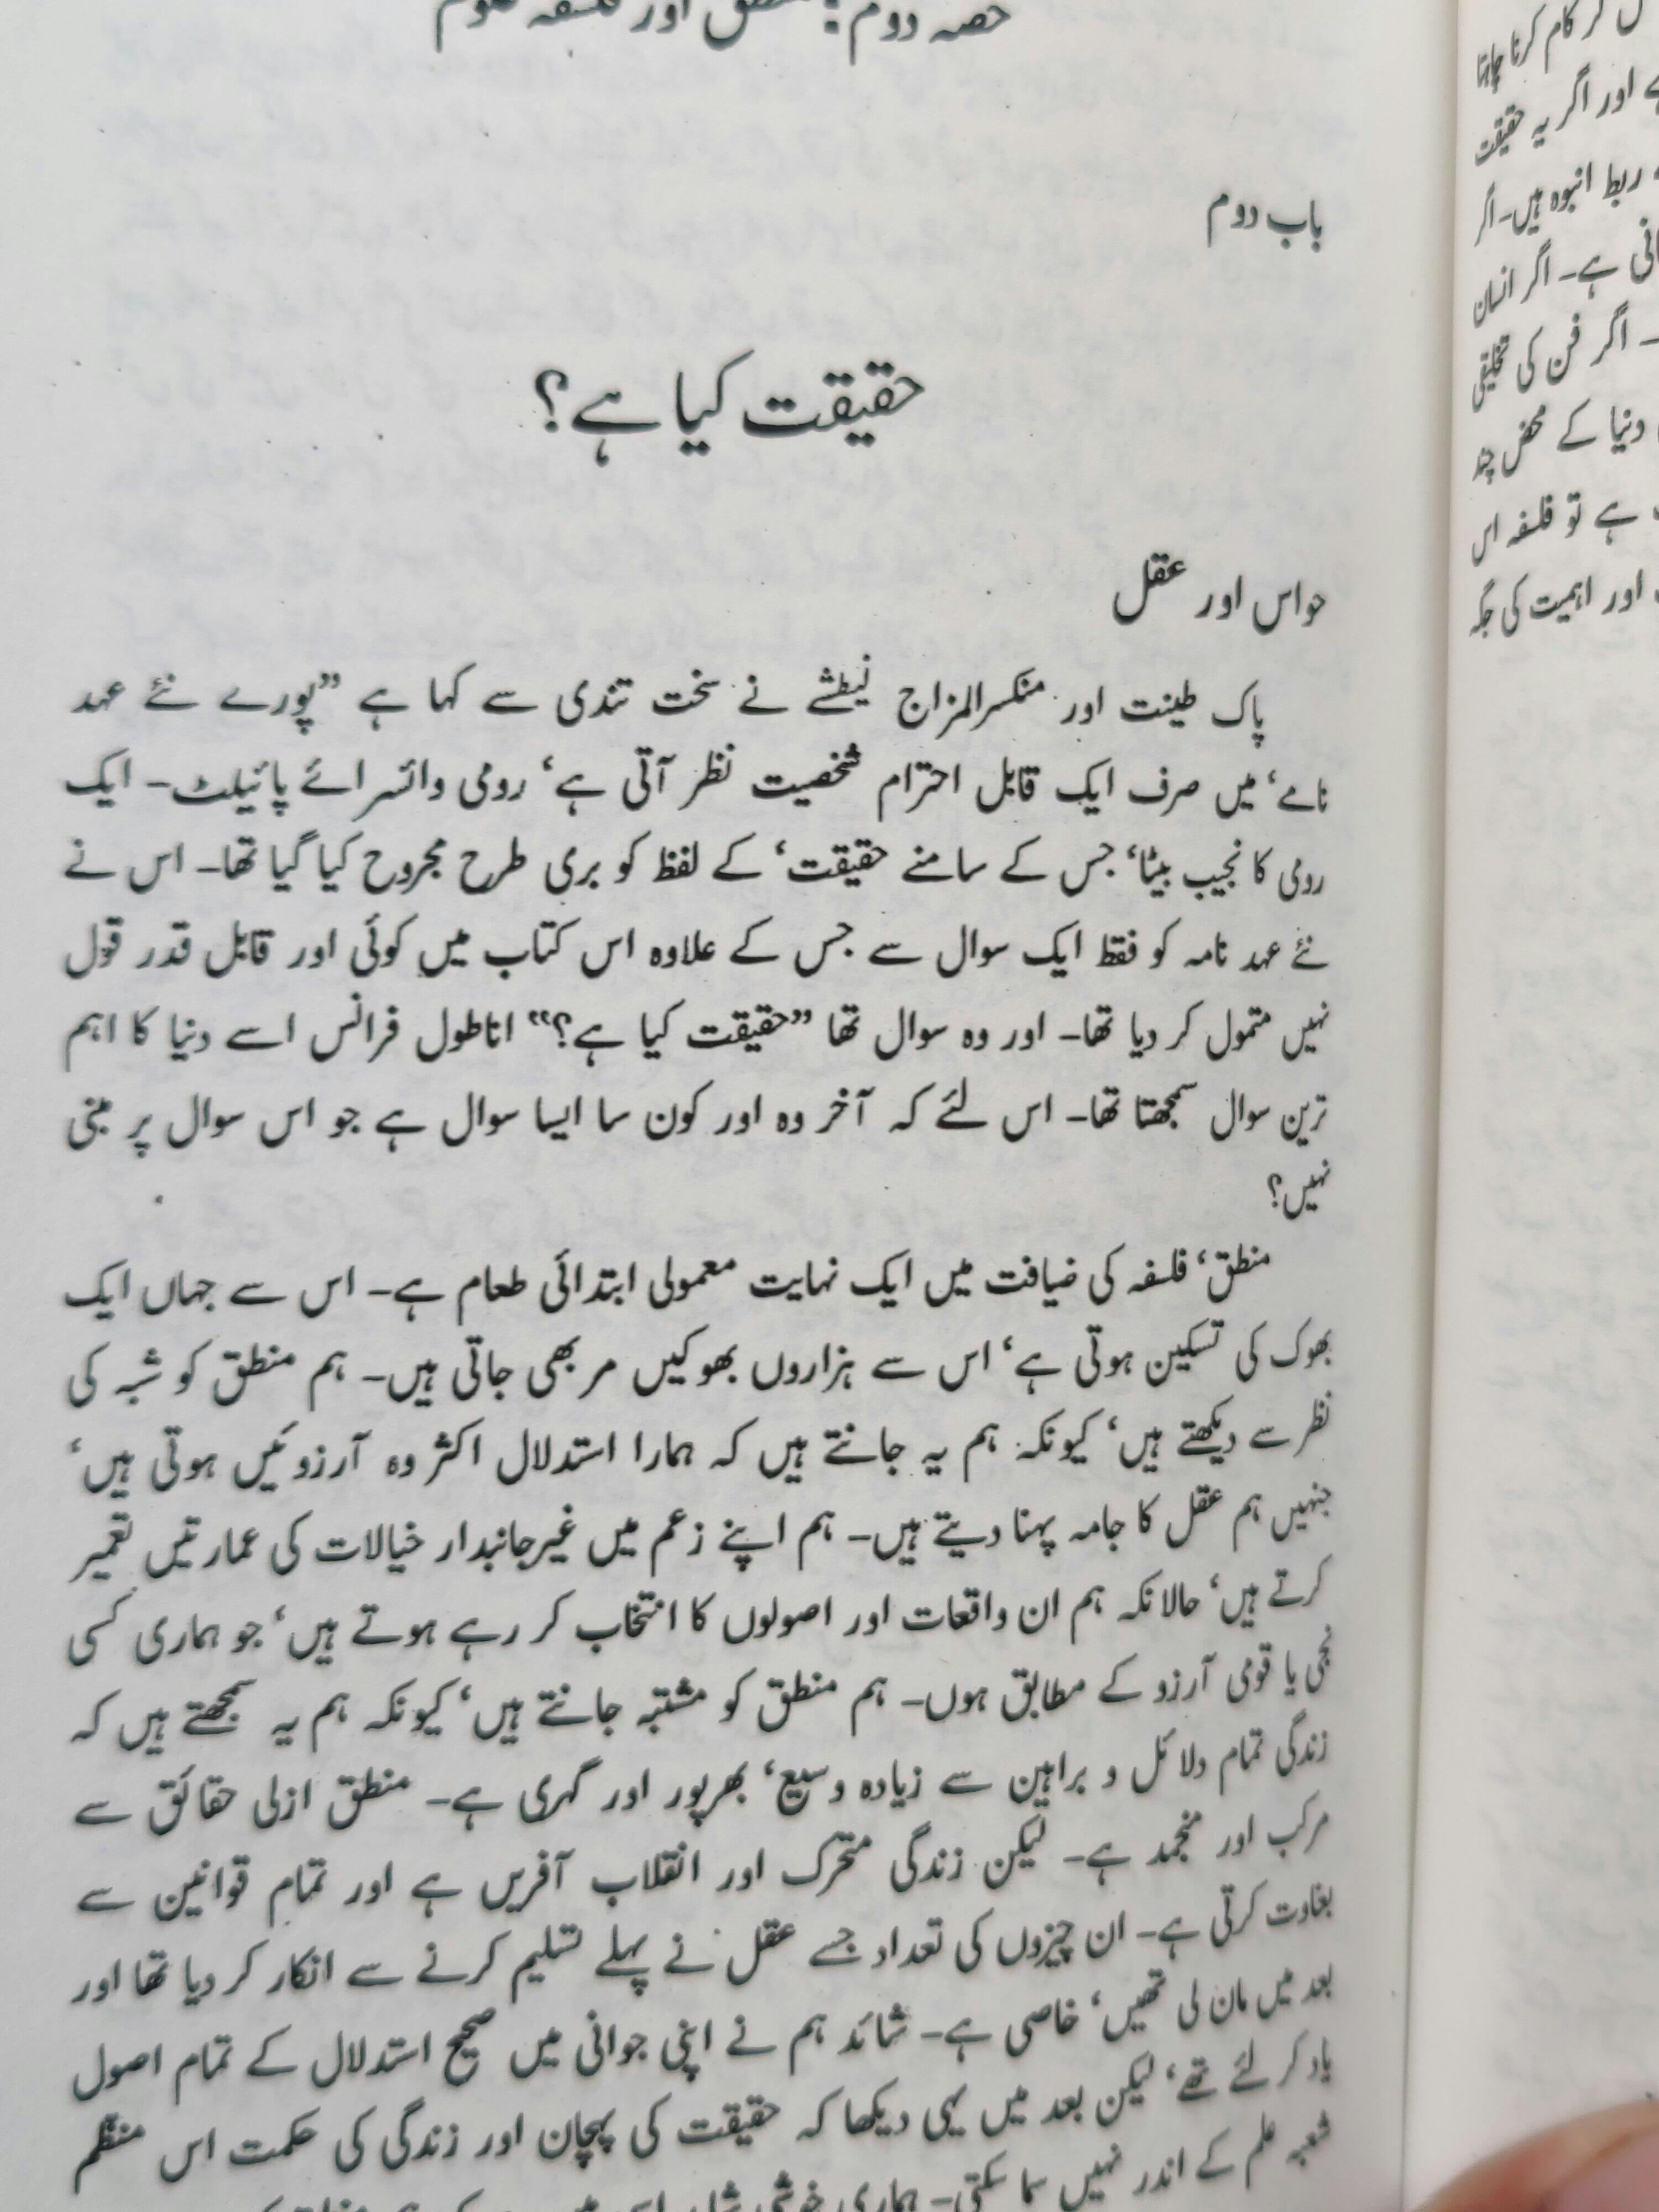 حصہ دوم: منطق اور فلسفہ علوم
باب دوم
حقیقت کیا ہے؟
حواس اور عقل
پاک طینت اور منکسرالمزاج نیطشے نے سخت تندی سے کہا ہے ”پورے نئے عہد
نامے‘ میں صرف ایک قابل احترام شخصیت نظر آتی ہے‘ رومی وائسرائے پائیلٹ۔ ایک
رومی کا نجیب بیٹا‘ جس کے سامنے حقیقت‘ کے لفظ کو بری طرح مجروح کیا گیا تھا۔ اس نے
نئے عہد نامہ کو فقط ایک سوال سے جس کے علاوہ اس کتاب میں کوئی اور قابل قدر قول
نہیں متمول کر دیا تھا۔ اور وہ سوال تھا ”حقیقت کیا ہے؟“ اناطول فرانس اسے دنیا کا اہم
ترین سوال سمجھتا تھا۔ اس لئے کہ آخر وہ اور کون سا ایسا سوال ہے جو اس سوال پر مبنی
نہیں؟
منطق‘ فلسفہ کی ضیافت میں ایک نہایت معمولی ابتدائی طعام ہے۔ اس سے جہاں ایک
بھوک کی تسکین ہوتی ہے‘ اس سے ہزاروں بھوکیں مر بھی جاتی ہیں۔ ہم منطق کو شبہ کی
نظر سے دیکھتے ہیں‘ کیونکہ ہم یہ جانتے ہیں کہ ہمارا استدلال اکثر وہ آرزوئیں ہوتی ہیں‘
جنہیں ہم عقل کا جامہ پہنا دیتے ہیں۔ ہم اپنے زعم میں غیرجانبدار خیالات کی عمارتیں تعمیر
کرتے ہیں‘ حالانکہ ہم ان واقعات اور اصولوں کا انتخاب کر رہے ہوتے ہیں‘ جو ہماری کسی
نجی یا قومی آرزو کے مطابق ہوں۔ ہم منطق کو مشتبہ جانتے ہیں‘ کیونکہ ہم یہ سمجھتے ہیں کہ
زندگی تمام دلائل و براہین سے زیادہ وسیع‘ بھرپور اور گہری ہے۔ منطق ازلی حقائق سے
مرکب اور منجمد ہے۔ لیکن زندگی متحرک اور انقلاب آفریں ہے اور تمام قوانین سے
بغاوت کرتی ہے۔ ان چیزوں کی تعداد جسے عقل نے پہلے تسلیم کرنے سے انکار کر دیا تھا اور
بعد میں مان لی تھیں‘ خاصی ہے۔ شائد ہم نے اپنی جوانی میں صحیح استدلال کے تمام اصول
یاد کر لئے تھے‘ لیکن بعد میں یہی دیکھا کہ حقیقت کی پہچان اور زندگی کی حکمت اس منظم
شعبہ علم کے اندر نہیں سما سکتی۔ ہماری خوشی
کر کام کرنا چاہتا
اور اگر یہ حقیقت
ربط انبوہ ہیں۔ اگر
ہے۔ اگر انسان
اگر فن کی تخلیقی
دنیا کے محض چند
ہے تو فلسفہ اس
اور اہمیت کی جگہ